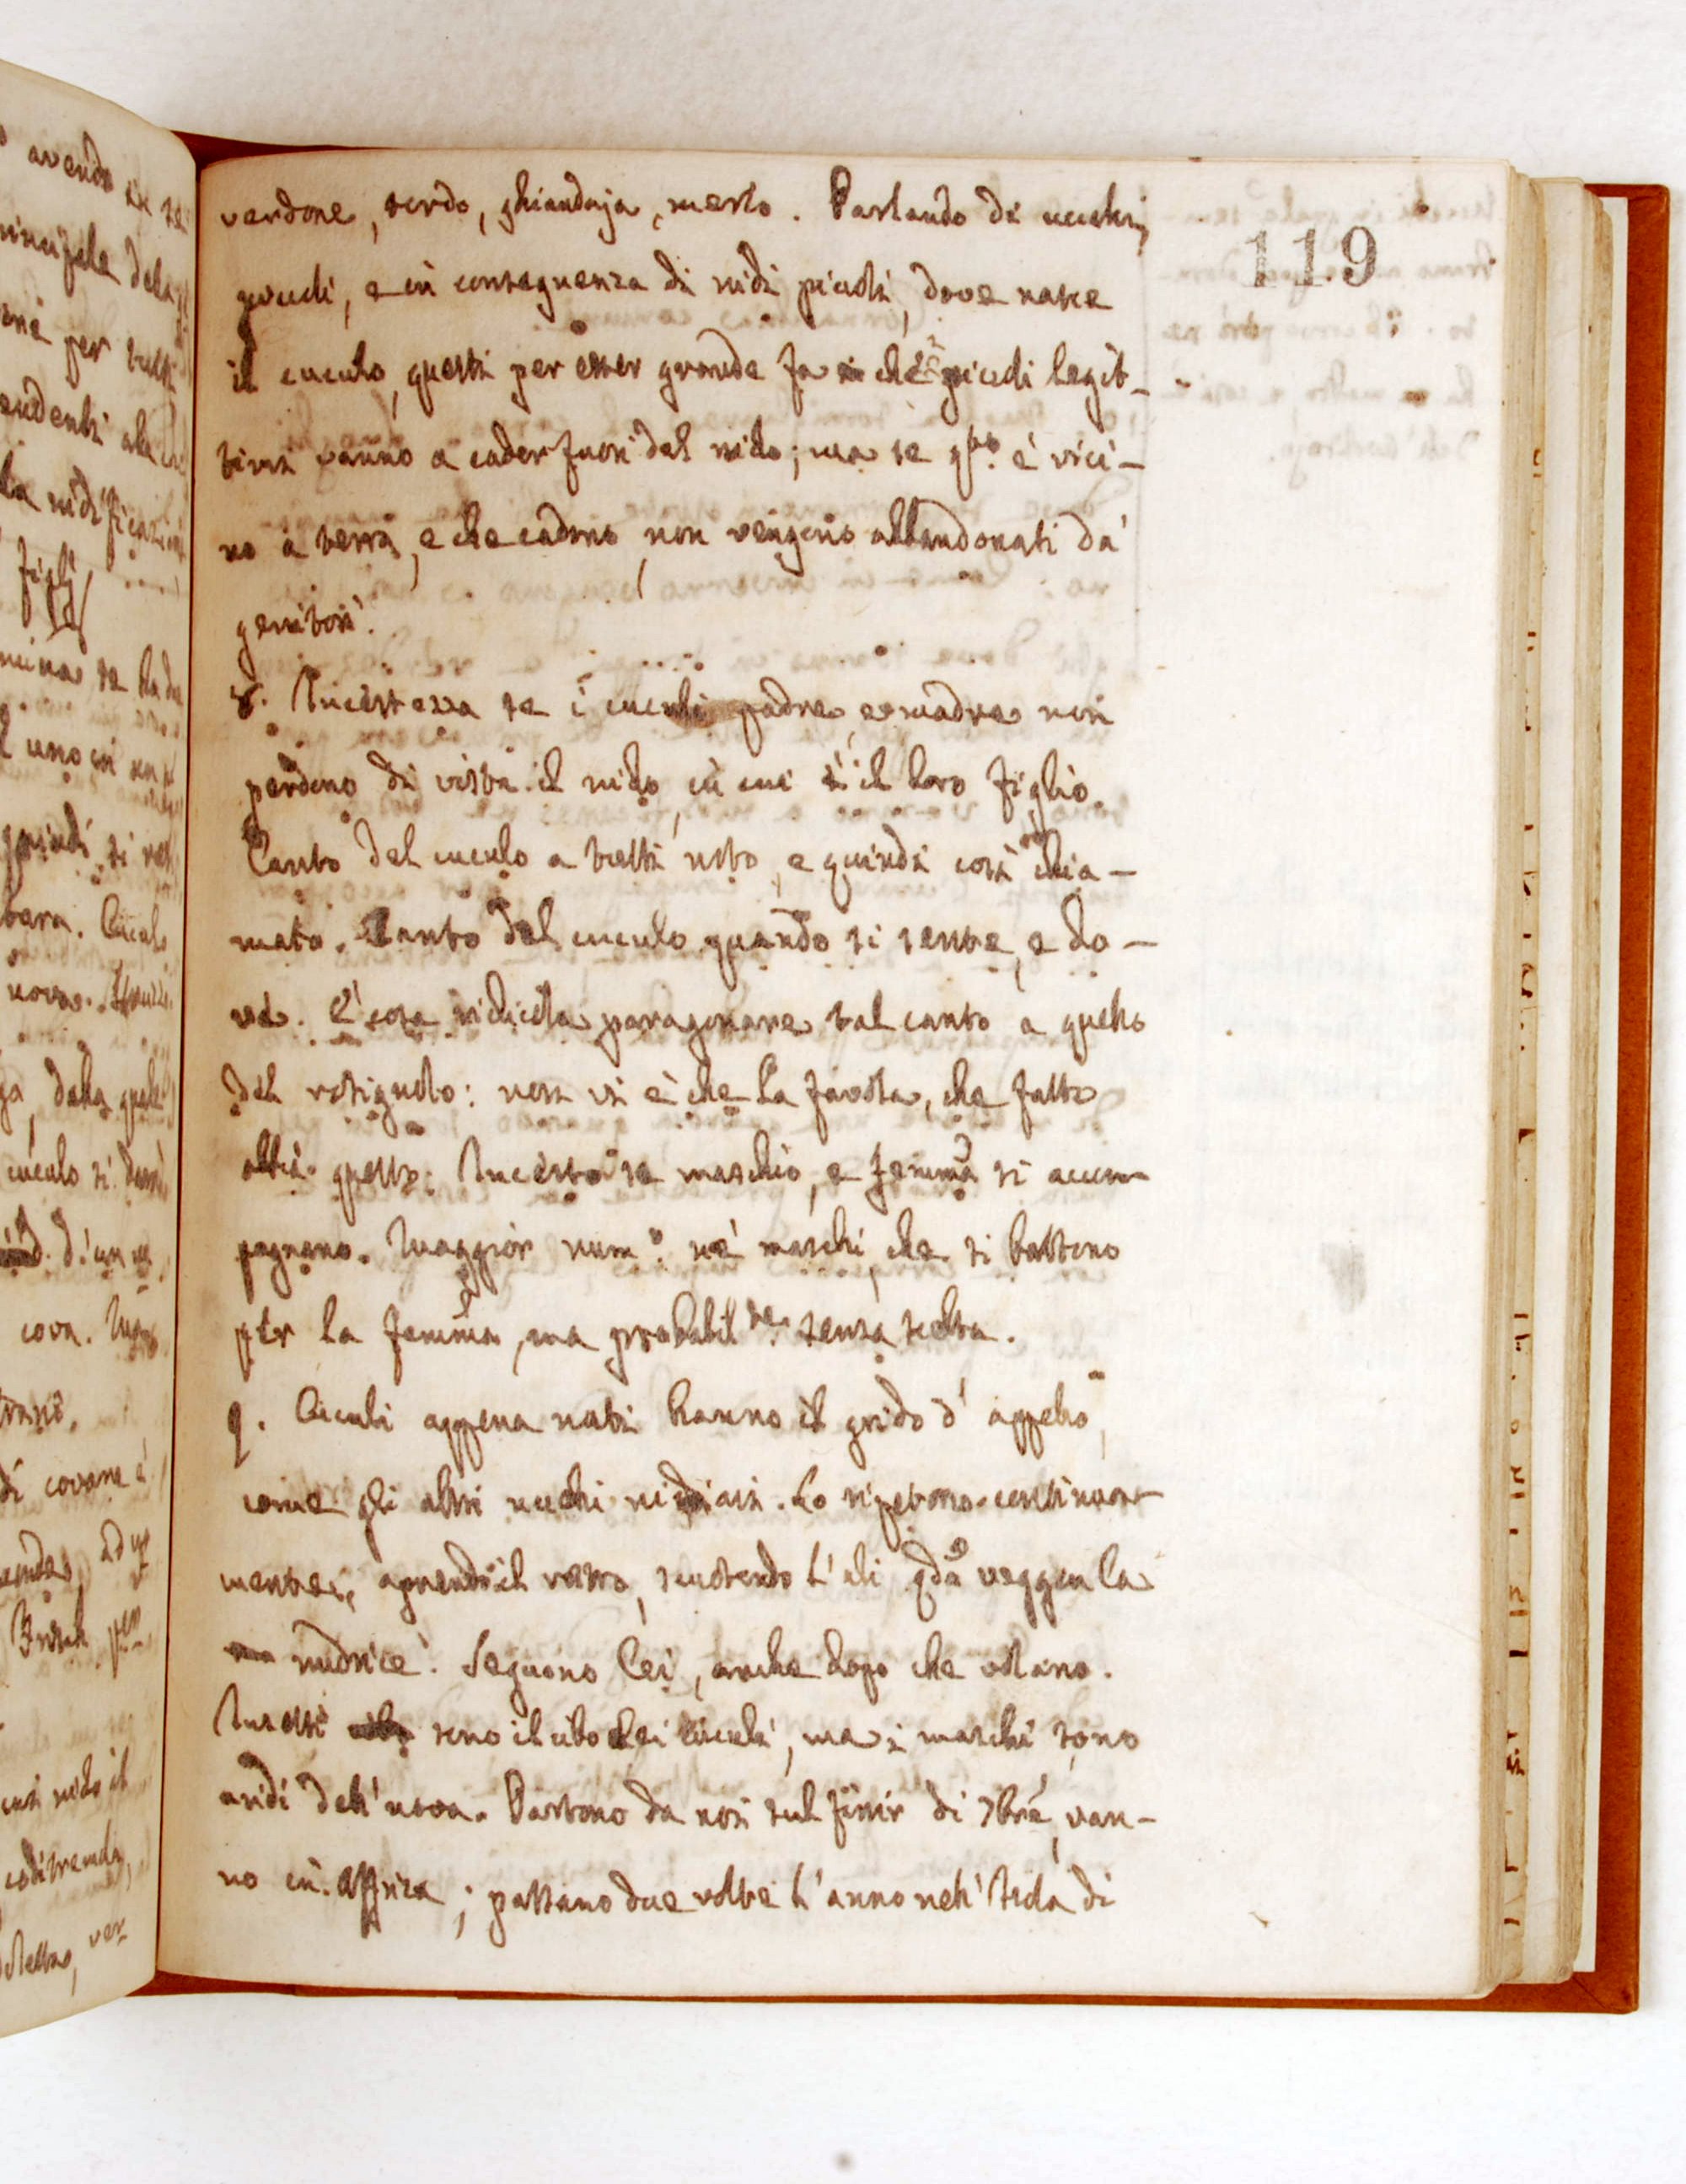 119
verdone, tordo, ghiandaja, merlo. Parlando di uccelli
piccoli, e in conseguenza di nidi piccoli, dove nasce
il cuculo, questi per esser grande fa che i piccoli legit-
timi vanno a cader fuori del nido; ma se qsto. è vici-
no a terra, e che cadono, non vengono abbandonati da'
genitori.
8. Incertezza se i cuculi padre, e madre non
perdono di vista il nido, in cui è il loro figlio.
Canto del cuculo a tutti noto, e quindi così chia-
mato. Canto del cuculo quando si sente, e do-
ve. È cosa ridicola paragonare tal canto a quello
del rosignolo: non vi è che la favola, che fatto
abbia questo. Incerto se maschio, e femina si accom-
pagnano. Maggior num.o ne' maschi, che si battono
per la femina, ma probabil.te senza scelta.
9. Cuculi appena nati hanno il grido d'appello,
come gli altri uccelli nidiaci. Lo ripetono continua-
mente, aprendo il rostro, scuotendo l'ali qdo veggon la
nudrice. Seguono lei, anche dopo che volano.
Insetti sono il cibo dei cuculi, ma i maschi sono
avidi dell'uova. Partono da noi sul finir di 7bre, van-
no in Affrica; passano due volte l'anno nell'Isola di